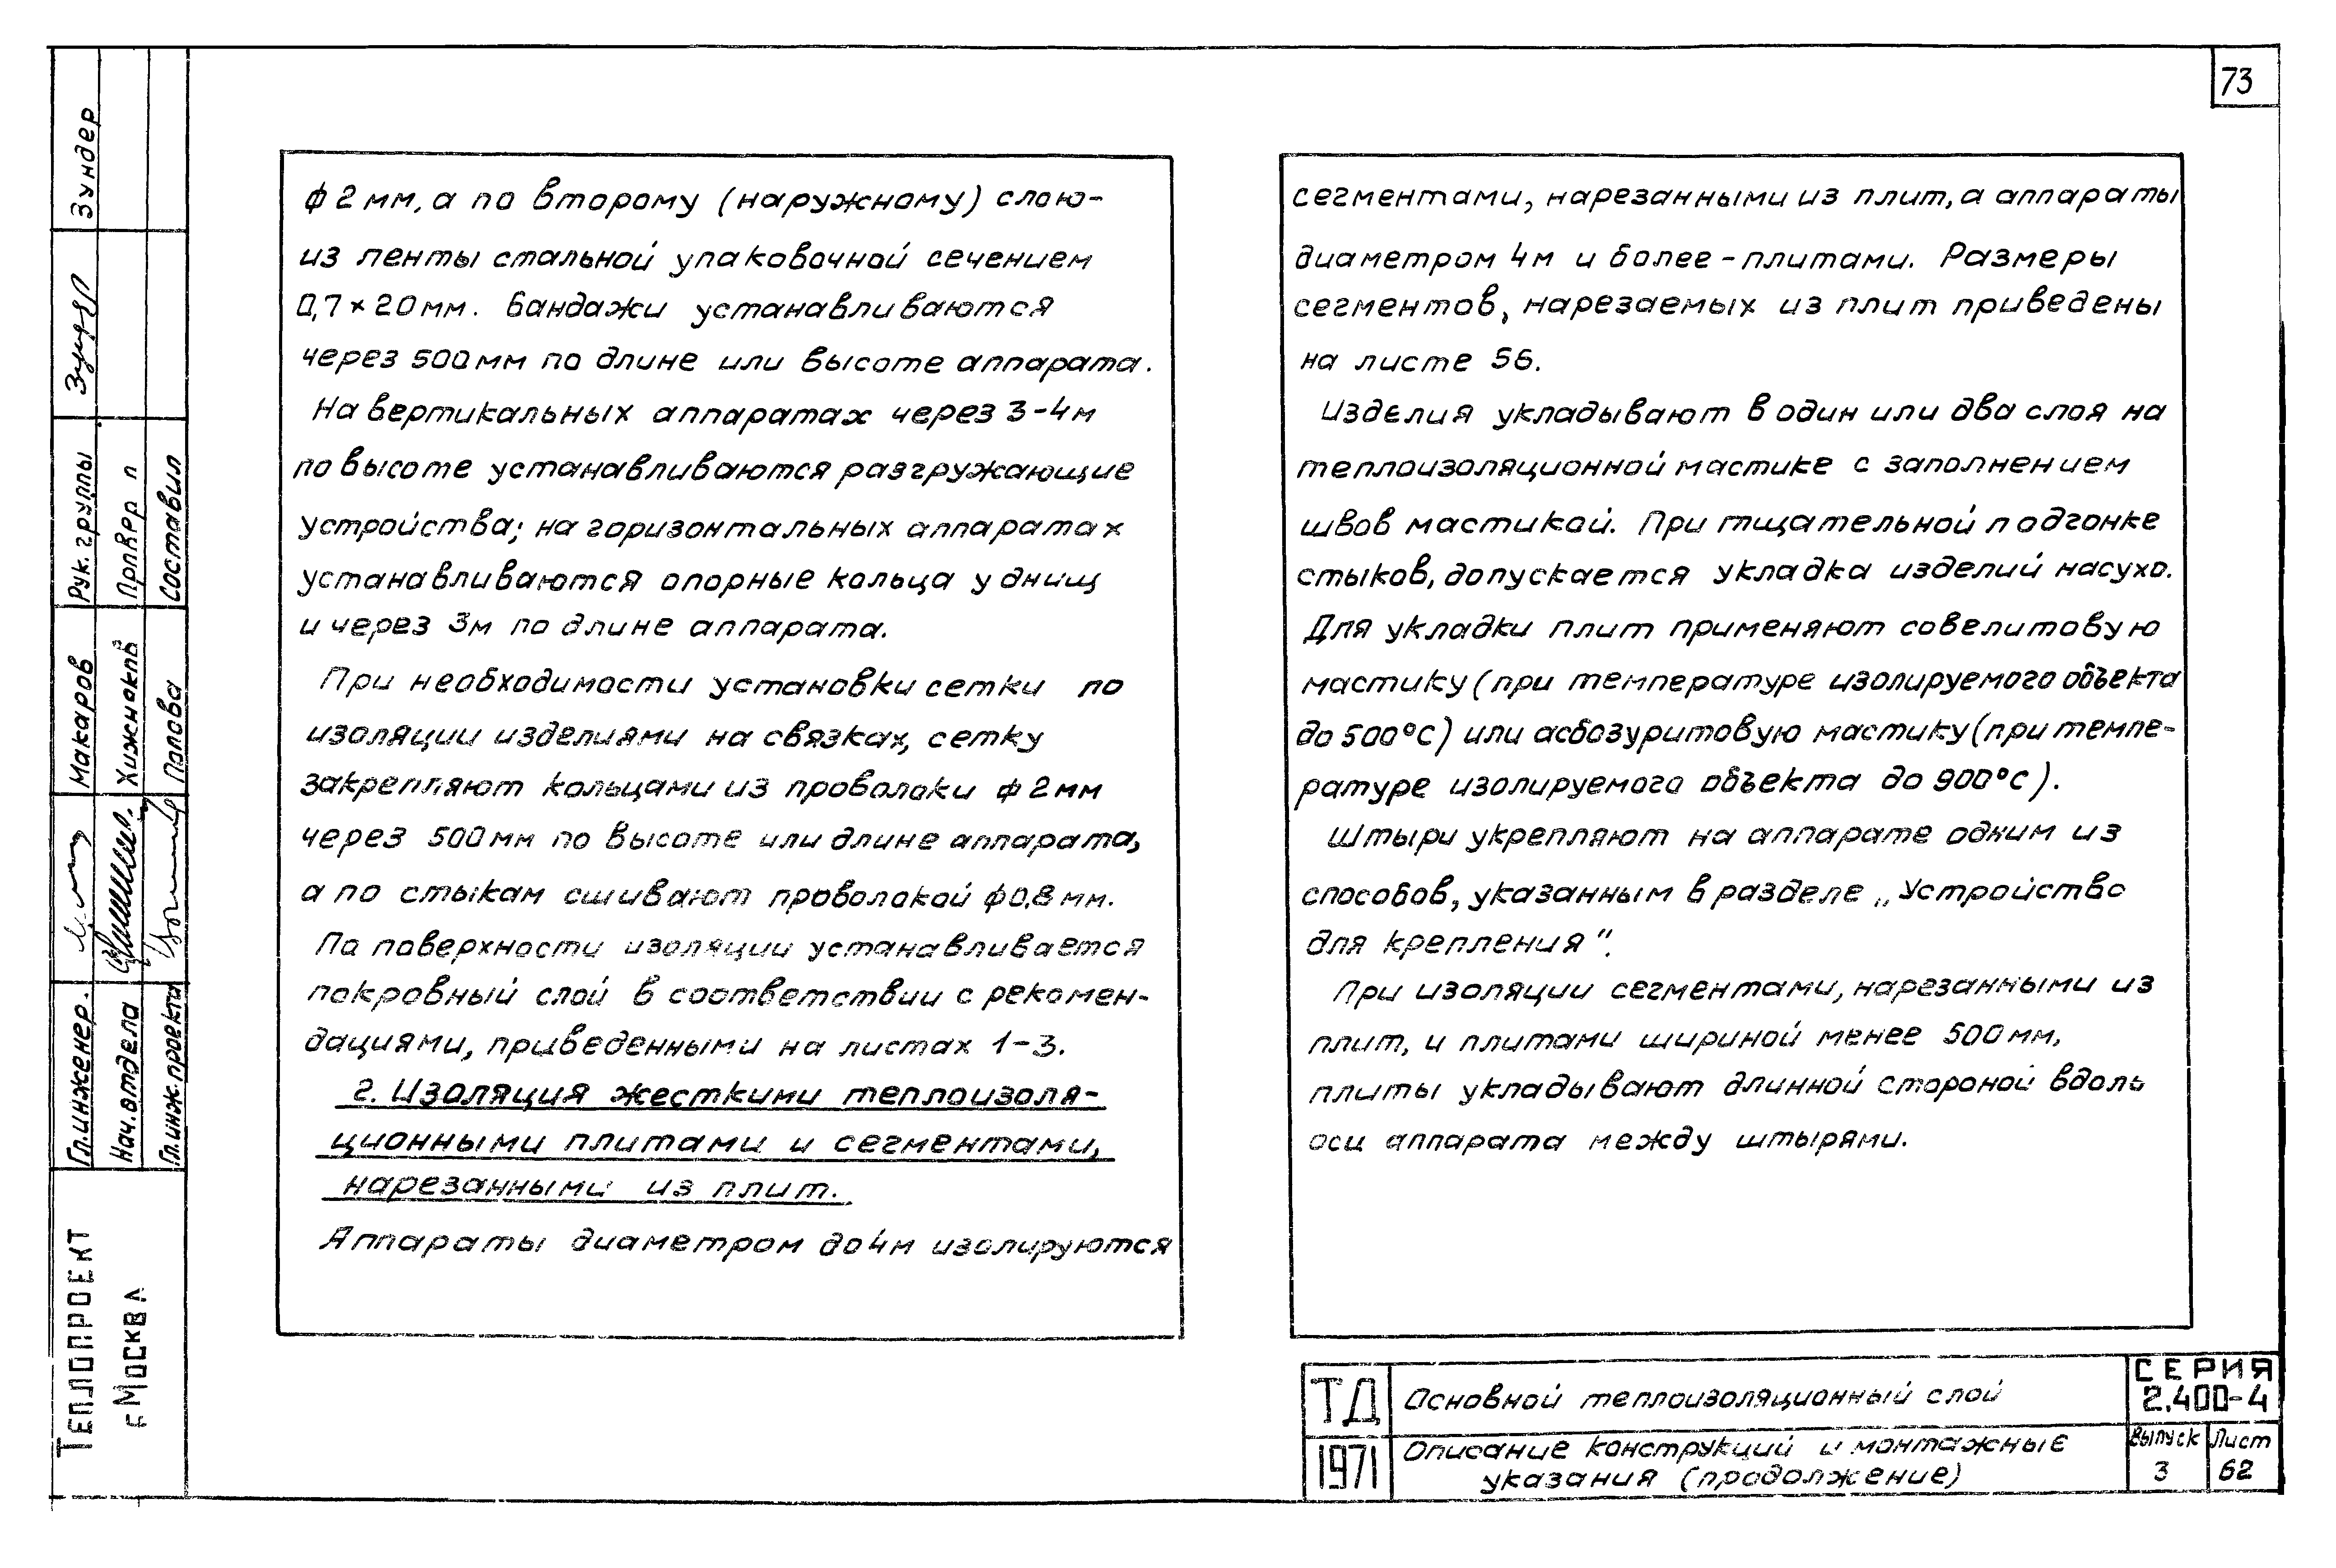 73
ф 2 мм, а по второму (наружному) слою-
из ленты стальной упаковочной сечением
0,7×20мм. Бандажи устанавливаются
через 500мм по длине или высоте аппарата.
На вертикальных аппаратах через 3-4м
по высоте устанавливаются разгружающие
устройства; на горизонтальных аппаратах
устанавливаются опорные кольца у днищ
и через 3м по длине аппарата.
При необходимости установки сетки по
изоляции изделиями на связках, сетку
закрепляют кольцами из проволоки ф 2мм
через 500мм по высоте или длине аппарата,
а по стыкам сшивают проволокой ф0,8 мм.
По поверхности изоляции устанавливается
покровный слой в соответствии с рекомен-
дациями, приведенными на листах 1-3.
г. Изоляция жесткими теплоизоля-
ционными плитами и сегментами,
нарезанными из плит.
Аппараты диаметром до 4м изолируются
сегментами, нарезанными из плит, а аппараты
диаметром 4м и более - плитами. Размеры
сегментов, нарезаемых из плит приведены
на листе 56.
Изделия укладывают в один или два слоя на
теплоизоляционной мастике с заполнением
швов мастикой. При тщательной подгонке
стыков, допускается укладка изделий насухо.
Для укладки плит применяют совелитовую
мастику (при температуре изолируемого объекта
до 500°С) или асбозуритовую мастику (при темпе-
ратуре изолируемого объекта до 900°С).
Штыри укрепляют на аппарате одним из
способов, указанным в разделе „Устройство
для крепления".
При изоляции сегментами, нарезанными из
плит, и плитами шириной менее 500мм,
плиты укладывают длинной стороной вдоль
оси аппарата между штырями.
ТД
1971
Основной теплоизоляционный слой
Описание конструкций и монтажные
указания (продолжение)
СЕРИЯ
2.400-4
Выпуск
3
Лист
62
Зундер
Рук. группы
Составил
Макаров
Попова
Гл. инженер.
Нач. отдела
Гл. инж. проекта
ТЕПЛОПРОЕКТ
г. МОСКВА